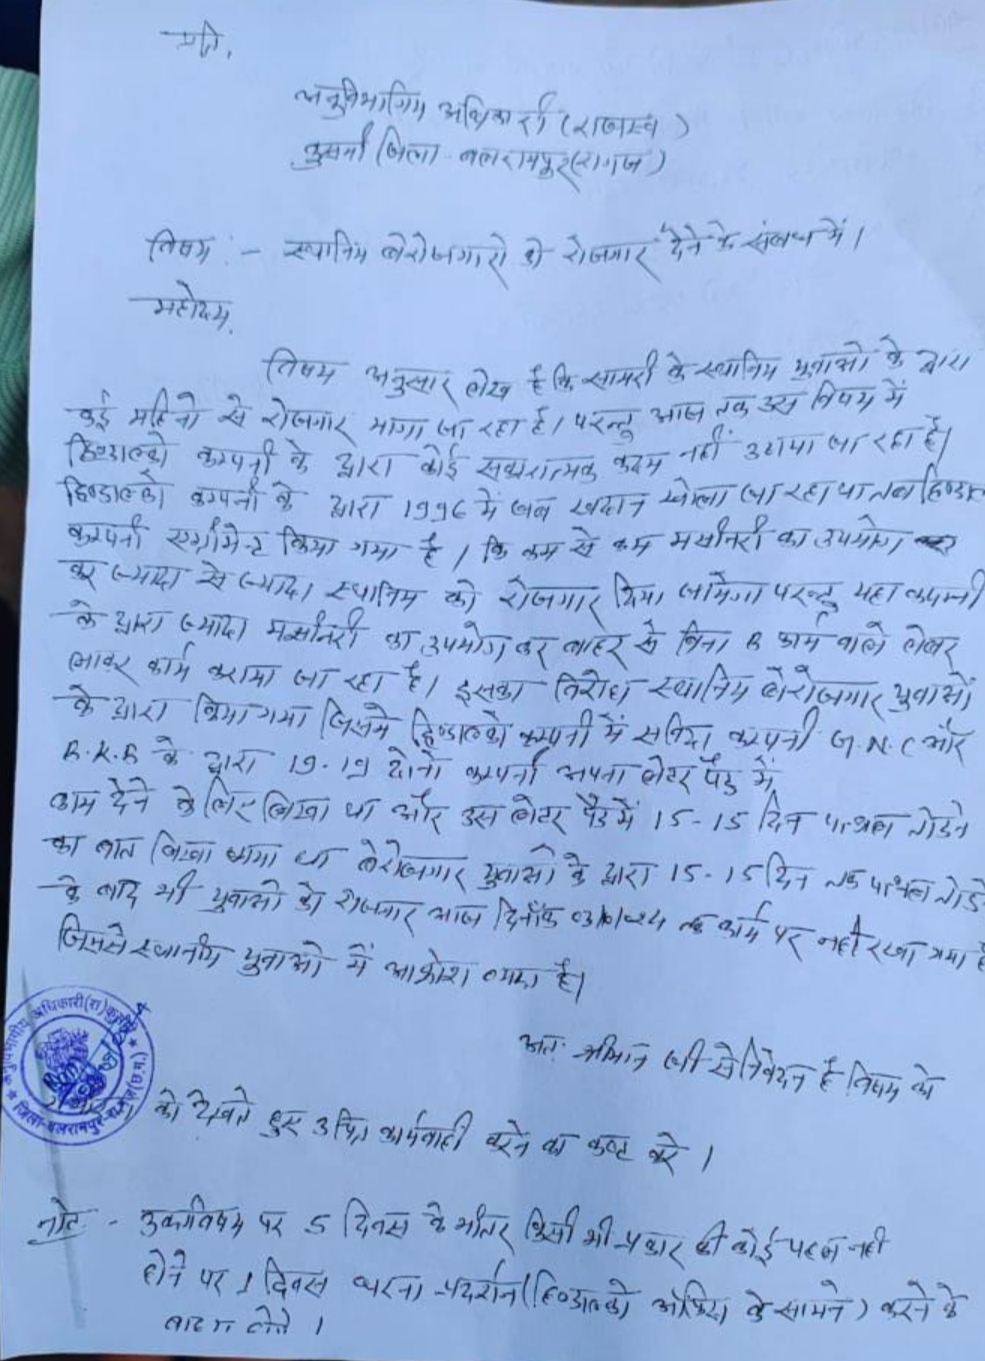 प्रति,
अनुविभागिय अधिकारी (राजस्व)
कुसमी जिला - बलरामपुर (रा०गंज)
विषय :- स्थानिय बेरोजगारो को रोजगार देने के संबंध में।
महोदय,
विषय अनुसार लेख है कि सामरी के स्थानिय युवाओ के द्वारा
कई महिनो से रोजगार मांगा जा रहा है। परन्तु आज तक उस विषय में
हिण्डाल्को कम्पनी के द्वारा कोई सकारात्मक कदम नहीं उठाया जा रहा है।
हिण्डाल्को कम्पनी के द्वारा 1996 में जब खदान खोला जा रहा था तब हिण्डा
कम्पनी एग्रीमेन्ट किया गया है। कि कम से कम मसीनरी का उपयोग
कर ज्यादा से ज्यादा स्थानिय को रोजगार दिया जायेगा परन्तु यहा कम्पनी
के द्वारा ज्यादा मसीनरी का उपयोग कर बाहर से बिना B फार्म वाले लेबर
लाकर कार्य कराया जा रहा है। इसका विरोध स्थानिय बेरोजगार युवाओं
के द्वारा किया गया जिसमे हिण्डाल्को कम्पनी में कम्पनी G.N.C और
B.K.B के द्वारा 19-19 दोनो कम्पनी अपना लेटर पैड में
काम देने के लिए लिखा था और उस लेटर पैड में 15-15 दिन
का बात लिखा गया था बेरोजगार युवाओ के द्वारा 15-15 दिन तक
के बाद भी युवाओ को रोजगार आज दिनाँक तक कार्य पर नही रखा गया है
जिससे स्थानीय युवाओ में आक्रोश है।
अतः श्रीमान जी से निवेदन है विषय को
को देखते हुए उचित कार्यवाही करने का कष्ट करे।
नोट - उक्त विषय पर 5 दिवस के भीतर किसी भी प्रकार की कोई पहल नही
होने पर 1 दिवस धरना प्रदर्शन (हिण्डाल्को ऑफिस के सामने) करने के
बाध्य होंगे।
अनुविभागीय अधिकारी (रा) कुसमी
जिला-बलरामपुर-रा.गंज (छ.ग.)